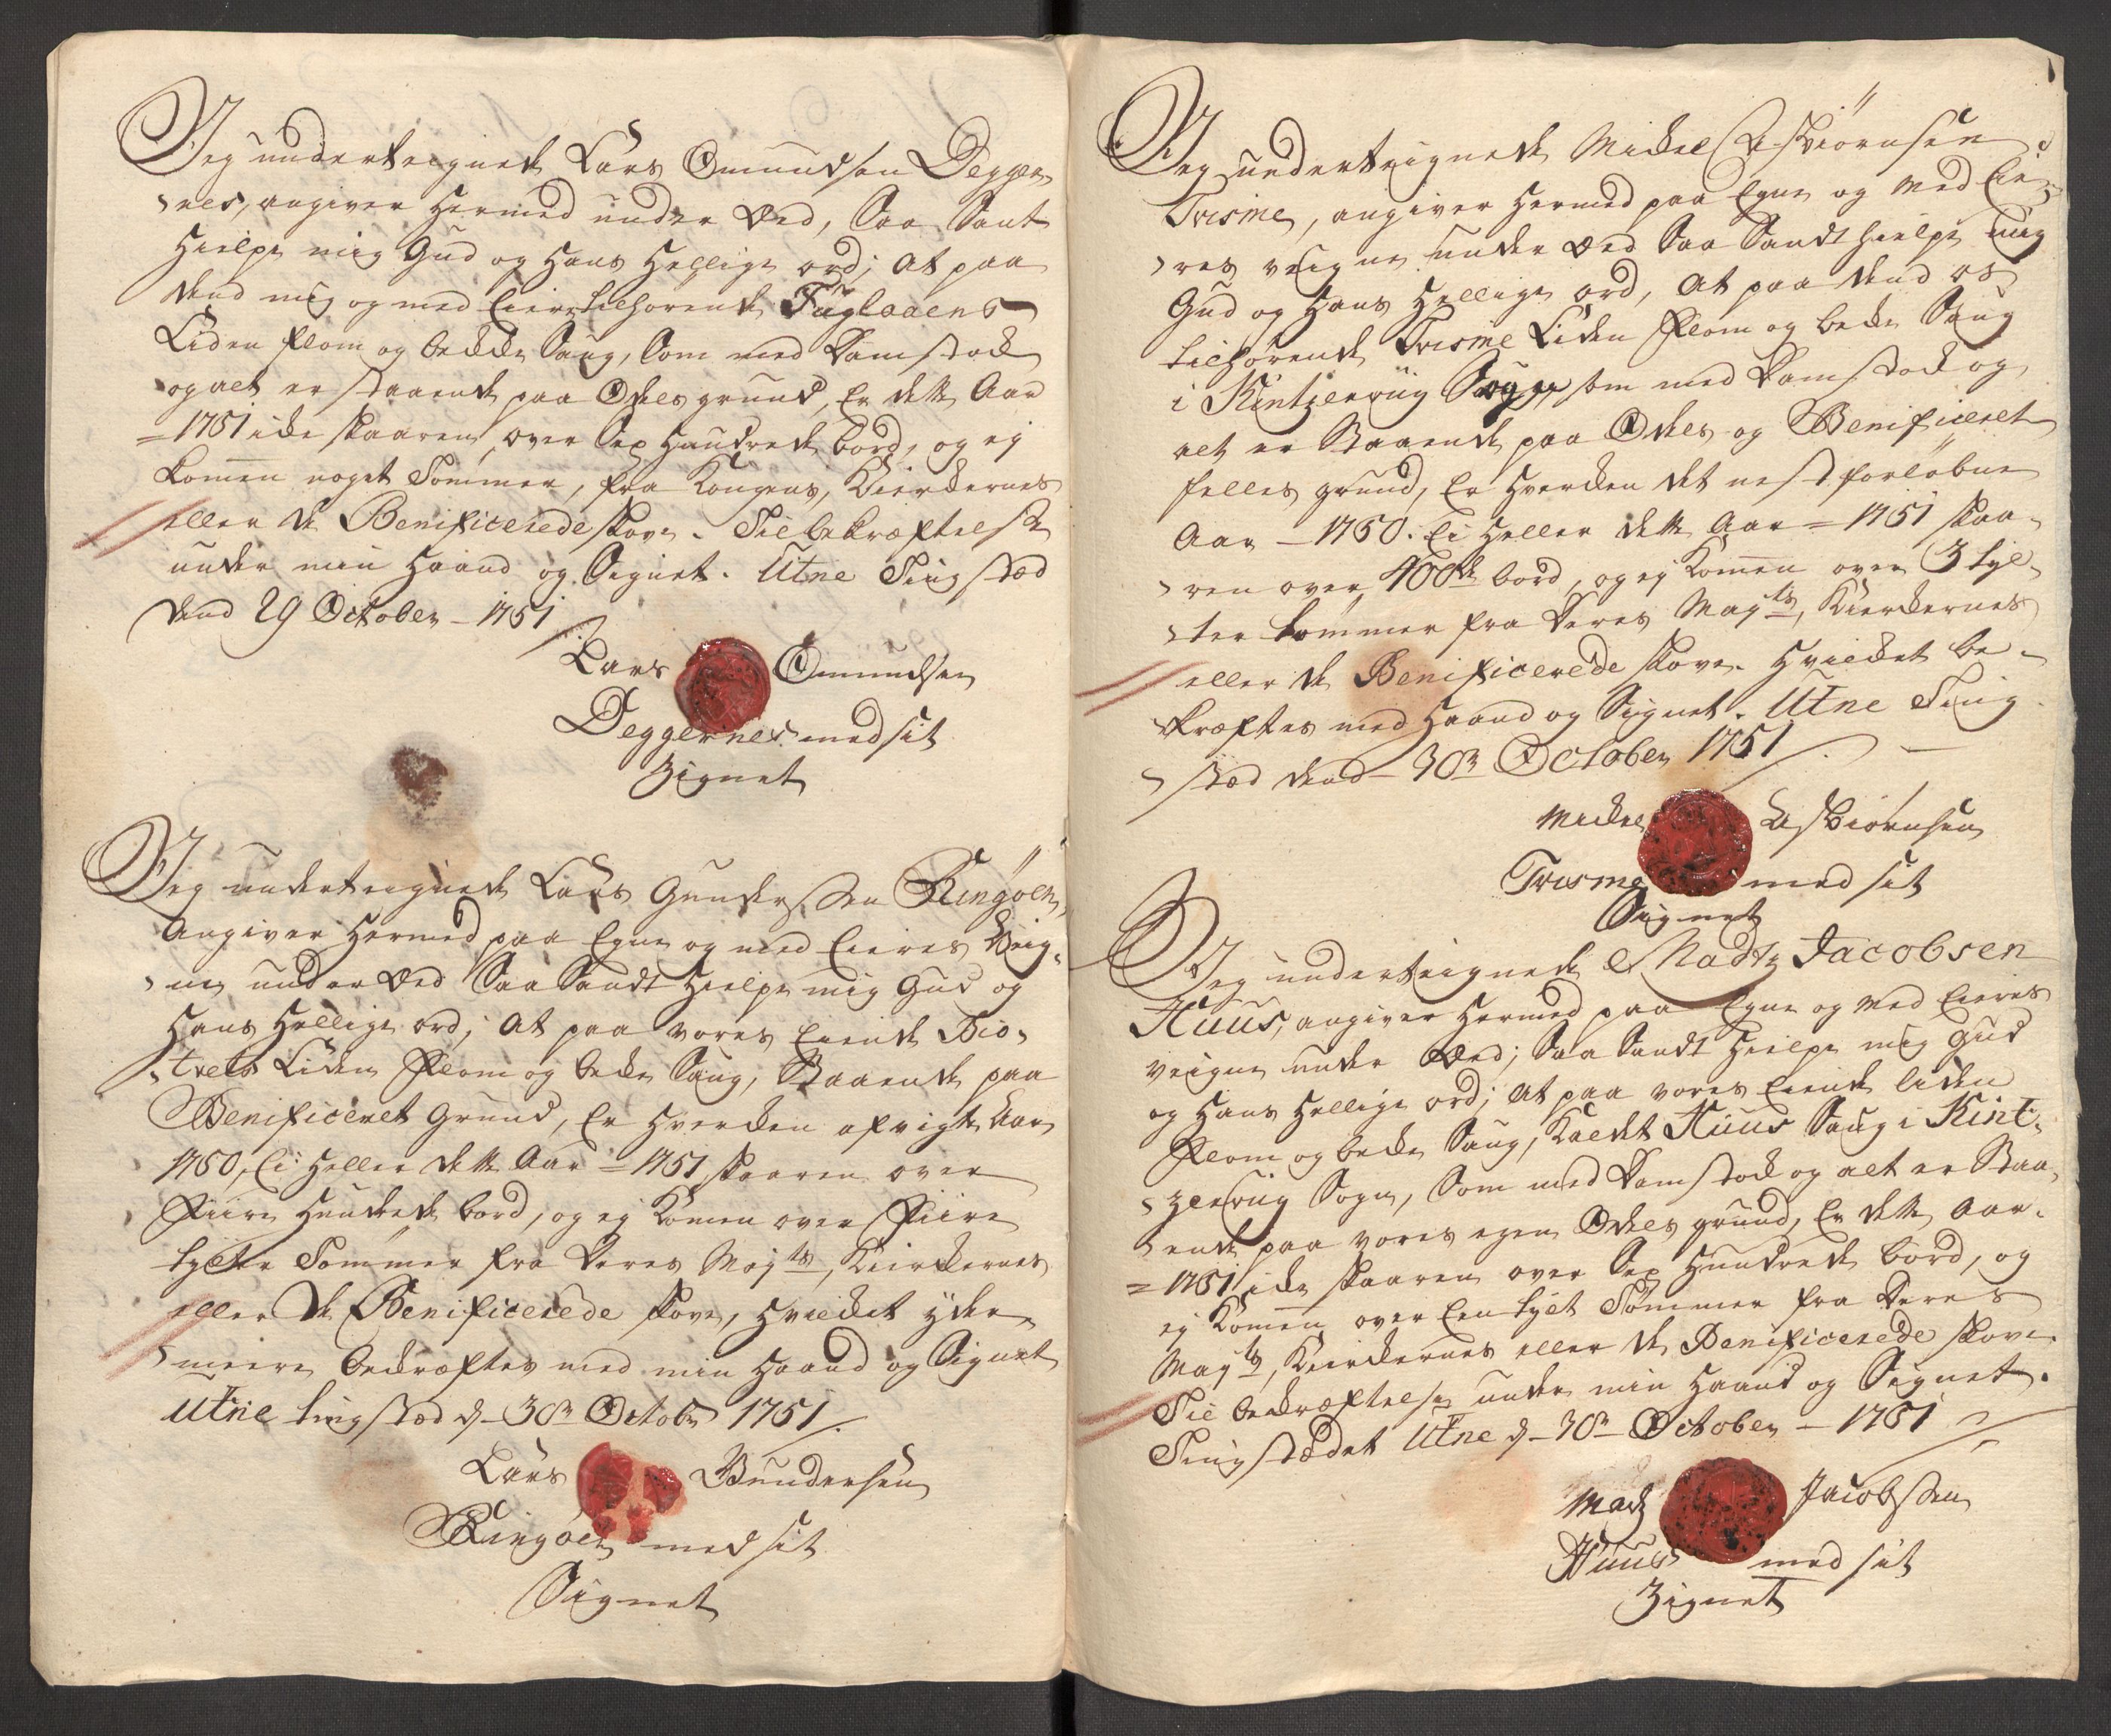 Jeg underteignede Lars Omundsen Degger-
nes, angiver hermed under Æd, Saa Sant
hielpe mig Gud og hans hellige ord; at paa
dend mig og med Eiere tilhørende Fuglaaens
Liden flom og bekke Saug, som med damstock
og alt er staaende paa Odels grund, Er dette Aar
=1751 icke skaaren over Sex hundrede bord, og ej
komen noget Tømmer, fra Kongens, Kierkernes
eller de Benificerede skove. Til bekræftelse
under min haand og Signet. Utne Tingstæd
dend 29 October - 1751
Lars Omundsen
Deggernes med sit
Zignet
Jeg underteignede Lars Gundersen Ringøen,
Angiver hermed paa Egne og med Eieres Veig-
ne, under Æd Saa Sandt hielpe mig Gud og
hans hellige ord; at paa vores Eiende Bio-
trets Liden flom og becke Saug, Staaende paa
Benificeret Grund, Er hverken afvigte Aar
1750, Ei heller dette Aar = 1751 skaaren over
Fiire hundrede bord, og ej komen over Fiire
tylter Tømmer fra deres Majts, Kierkernes
eller de Benificerede skove, hvilcket yder-
meere bekræftes med min haand og Signet
Utne tingstæd d- 30te Octobr 1751
Lars Gundersen
Ringøen med sit
Signet
Jeg underteignede Mickel Asbiørnsen
Trisme, angiver hermed paa Egne og med Eie-
res veigne under Æd Saa Sandt hielpe mig
Gud og hans hellige ord, at paa dend os
tilhørende Trisme Liden flom og becke Saug
i Kintzervig Sogn som med damstock og
alt er Staaende paa Odels og Benificeret
felles grund, Er hverken det nest forløbne
Aar - 1750. Ei heller dette Aar = 1751 skaa-
ren over 400de bord, og ej komen over 3 tyl-
ter tømmer fra deres Majts, Kierkernes
eller de Benificerede skove. hvilcket be-
kræftes med haand og Signet. Utne Ting
stæd dend - 30te October 1751
Mickel Asbiørnsen
Trisme med sit
Signet
Jeg underteignede Madtz Jacobsen
Huus, angiver hermed paa Egne og med Eieres
veigne under Æd; Saa Sandt hielpe mig Gud
og hans hellige ord; at paa vores Eiende liden
flom og becke Saug, kaldet Huus Saug i Kint-
zervig Sogn, Som med damstock og alt er Staa-
ende paa vores egen Odels grund, Er dette Aar
=1751 icke skaaren over Sex hundrede bord, og
ej komen over Een tylt Tømmer fra deres
Majts, Kierkernes eller de Benificerede skove.
Til bekræftelse under min haand og Signet.
Tingstædet Utne d- 30te October - 1751
Madz Jacobsen
Huus med sit
Zignet